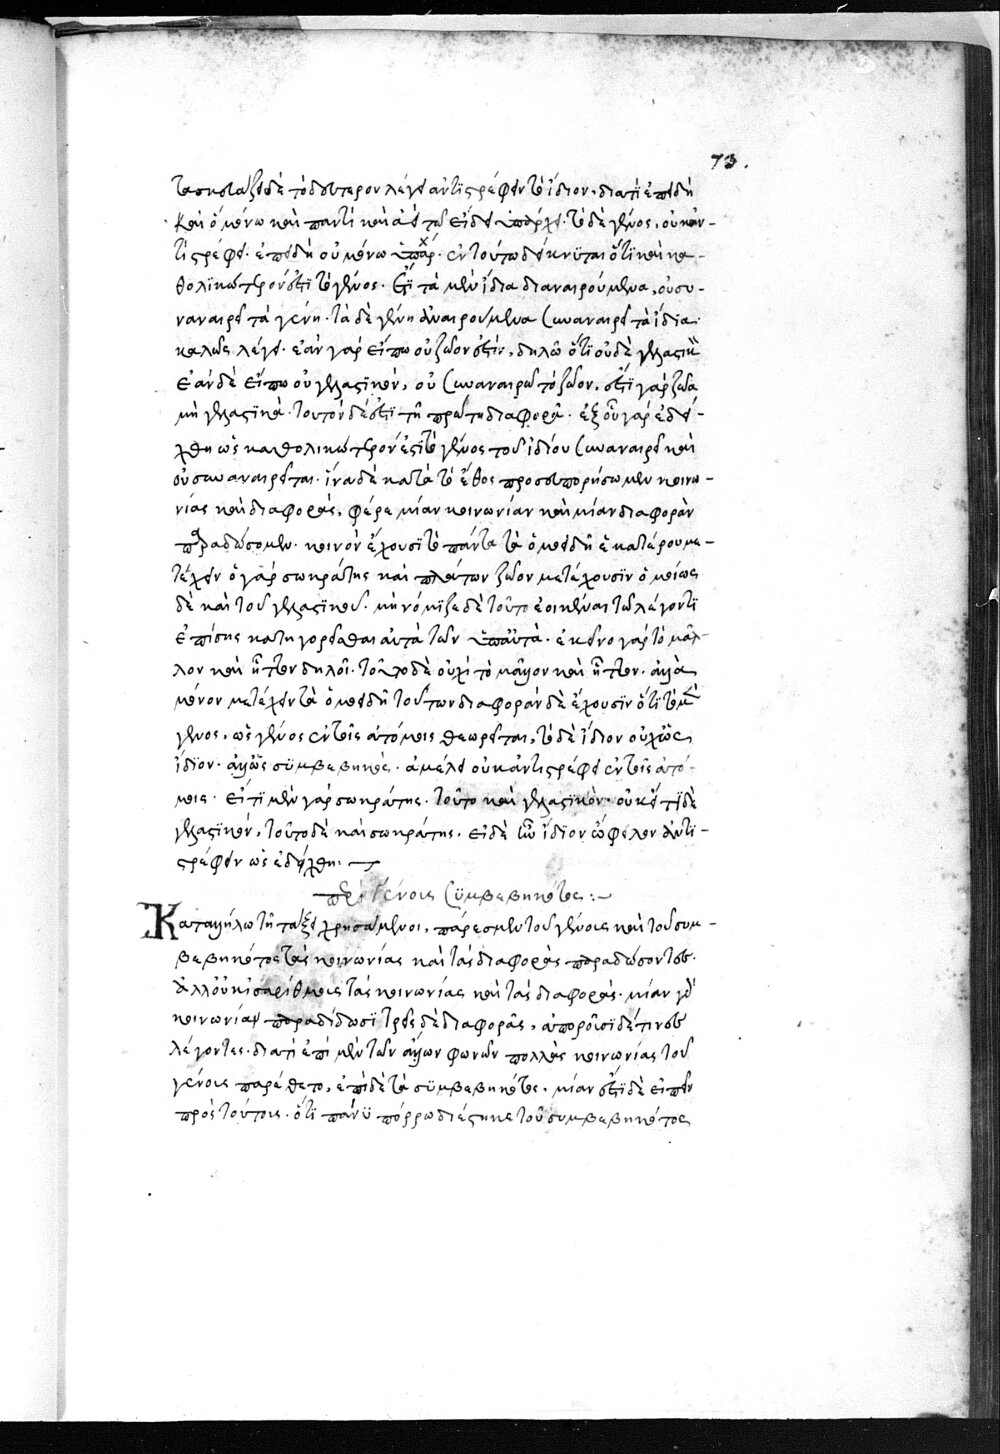 73.
τὸ δεύτερον λέγει ἀντιστρέφειν τὸ ἴδιον. διατί ἐπειδὴ
καὶ μόνω καὶ παντὶ καὶ ἀεὶ τῶ εἴδει ὑπάρχει. τὸ δὲ γένος, οὐκ ἀν-
τιστρέφει. ἐπειδὴ οὐ μόνω ὑπάρχ. ἐν τούτω δείκνυται ὅτι καὶ κα-
θολικώτερόν ἐστι τὸ γένος. ἔτι τὰ μὲν ἴδια ἀναιρούμενα, οὐ συ-
ναναιρεῖ τὰ γένη. τὰ δὲ γένη ἀναιρούμενα συναναιρεῖ τὰ ἴδια.
καλῶς λέγει. ἐὰν γὰρ εἴπω οὐ ζῶον ἐστίν, δηλῶ ὅτι οὐδὲ γελαστικὸν
ἐὰν δὲ εἴπω οὐ γελαστικόν, οὐ συναναιρῶ τὸ ζῶον. ἔστι γὰρ ζῶα
μὴ γελαστικά. ταυτὸν δέ ἐστι τῆ πρώτη διαφορᾶ. ἐξ οὗ γὰρ ἐδεί-
χθη ὡς καθολικώτερόν ἐστι τὸ γένος τοῦ ἰδίου συναναιρεῖ καὶ
οὐ συναναιρεῖται. ἵνα δὲ κατὰ τὸ ἔθος προσευπορήσωμεν κοινω-
νίας καὶ διαφοράς, φέρε μίαν κοινωνίαν καὶ μίαν διαφορὰν
παραδώσομεν. κοινὸν ἔχουσι τὸ πάντα τὰ ὁμοειδῆ ἑκατέρου με-
τέχειν ὁ γὰρ σωκράτης καὶ πλάτων ζῶον μετέχουσιν ὁμοίως
δὲ καὶ τοῦ γελαστικοῦ. μὴ νόμιζε δὲ τοῦτο ἐοικέναι τῶ λέγοντι
ἐπίσης κατηγορεῖσθαι αὐτὰ τῶν ὑπ αὐτά. ἐκεῖνο γὰρ τὸ μᾶλ-
λον καὶ ἧττον δηλοῖ. τοῦτο δὲ οὐχὶ τὸ μᾶλλον καὶ ἧττον. ἀλλὰ
μόνον μετέχειν τὰ ὁμοειδῆ τούτων διαφορὰν δὲ ἔχουσιν ὅτι τὸ μὲν
γένος, ὡς γένος ἐν τοῖς ἀτόμοις θεωρεῖται, τὸ δὲ ἴδιον οὐχ ὡς
ἴδιον. ἀλλ ὡς συμβεβηκός. ἀμέλει οὐκ ἀντιστρέφει ἐν τοῖς ἀτό-
μοις. εἴ τι μὲν γὰρ σωκράτης. τοῦτο καὶ γελαστικόν. οὐκ εἴ τι δὲ
γελαστικόν, τοῦτο δὲ καὶ σωκράτης. εἰ δὲ ἦν ἴδιον ὤφειλεν ἀντι-
στρέφειν ὡς ἐδείχθη.
περὶ γένους συμβεβηκότος:
Καταλλήλω τῆ τάξει χρησάμενοι, πάρεσμεν τοῦ γένους καὶ τοῦ συμ-
βεβηκότος τὰς κοινωνίας καὶ τὰς διαφορὰς παραδώσοντες.
ἀλλ οὐκ ἰσαρίθμοις τὰς κοινωνίας καὶ τὰς διαφοράς. μίαν γὰρ
κοινωνίαν παραδίδωσι τρεῖς δὲ διαφοράς, ἀποροῦσι δέ τινες
λέγοντες. διατί ἐπὶ μὲν τῶν ἄλλων φωνῶν πολλὰς κοινωνίας τοῦ
γένους παρέθετο, ἐπὶ δὲ τὰ συμβεβηκότος, μίαν ἔστι δὲ εἰπεῖν
πρὸς τούτοις. ὅτι πάνυ πόρρω διέστηκε τοῦ συμβεβηκότος